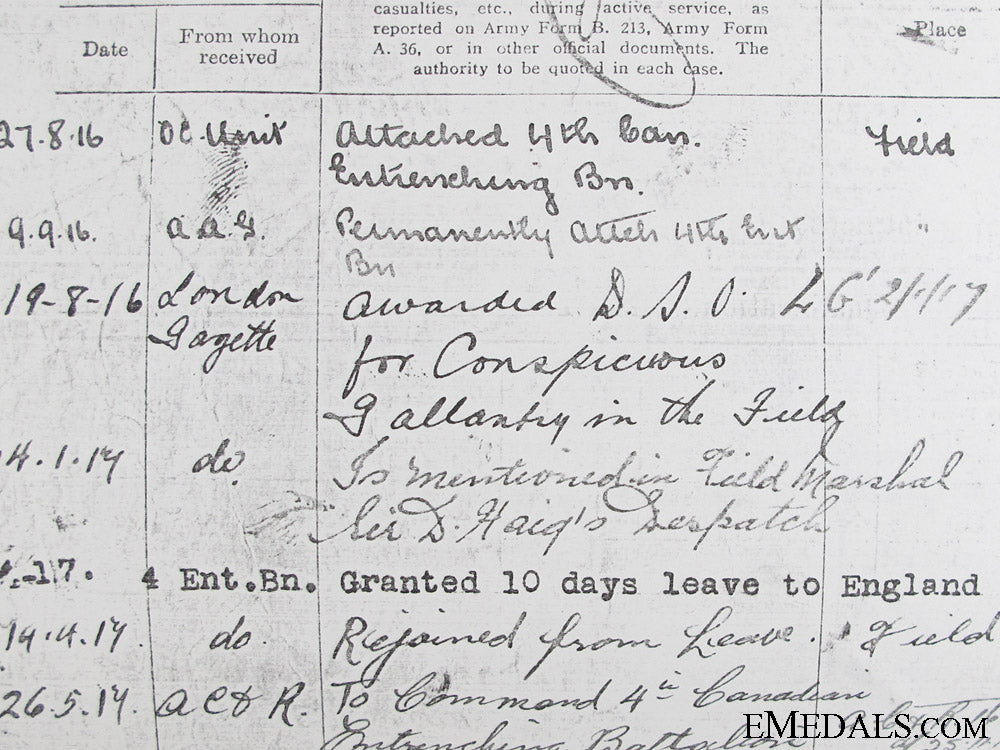 casualties, etc., during active service, as
reported on Army Form B. 213, Army Form
A. 36, or in other official documents. The
authority to be quoted in each case.
Date
From whom
received
Place
27.8.16 OC Unit Attached 4th Can. Field
Entrenching Bn.
9.9.16. A.A.G Permanently Attch 4th Ent "
Bn
19-8-16 London Awarded D.S.O. L G' 2/1/17
Gazette for Conspicuous
Gallantry in the Field
4.1.17 do. Is mentioned in Field Marshal
Sir D. Haig's Despatch
-17. 4 Ent.Bn. Granted 10 days leave to England
14.4.17 do. Rejoined from Leave. Field
26.5.17. To Command 4th Canadian
Entrenching Battalion
EMEDALS.COM